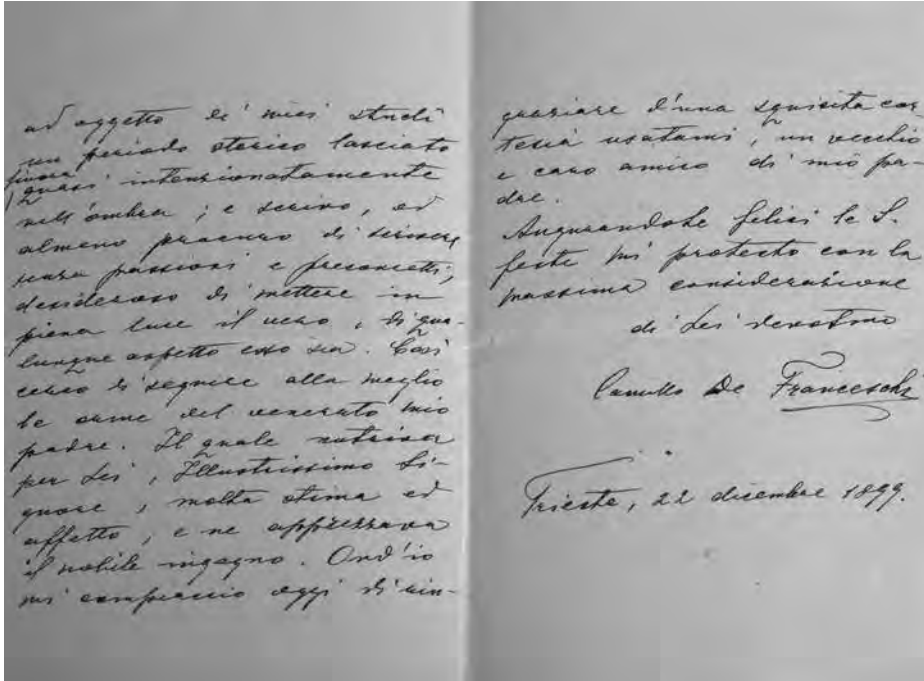 ad oggetto di miei studi
un periodo storico lasciato
finora quasi intenzionatamente
nell'ombra; e scrivo, od
almeno procuro di scrivere
senza passioni e preconcetti,
desideroso di mettere in
piena luce il vero, di qua-
lunque aspetto esso sia. Così
cerco di seguire alla meglio
le orme del venerato mio
padre. Il quale nutriva
per Lei, Illustrissimo Si-
gnore, molta stima ed
affetto, e ne apprezzava
il nobile ingegno. Ond'io
mi compiaccio oggi di rin-
graziare d'una squisita cor
tesia usatami, un vecchio
e caro amico di mio pa-
dre.
Augurandole felici le S.
feste mi protesto con la
massima considerazione
di Lei devotmo
Camillo De Franceschi
Trieste, 22 dicembre 1899.